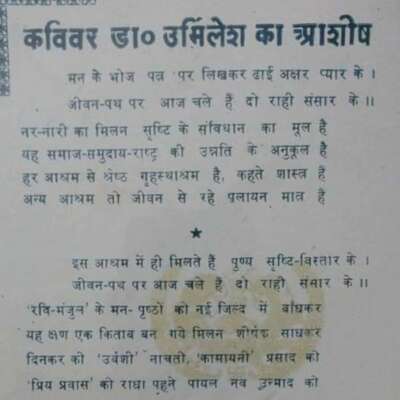 कविवर डा० उर्मिलेश का आशीष
मन के भोज पत्र पर लिखकर ढाई अक्षर प्यार के ।
जीवन-पथ पर आज चले हैं दो राही संसार के ।।
नर-नारी का मिलन सृष्टि के संविधान का मूल है
यह समाज-समुदाय-राष्ट्र की उन्नति के अनुकूल है
हर आश्रम से श्रेष्ठ गृहस्थाश्रम है, कहते शास्त्र हैं
अन्य आश्रम तो जीवन से रहे पलायन मात्र हैं
★
इस आश्रम में ही मिलते हैं पुण्य सृष्टि-विस्तार के ।
जीवन-पथ पर आज चले हैं दो राही संसार के ।।
'रवि-मंजुल' के मन-पृष्ठों को नई जिल्द में बाँधकर
यह क्षण एक किताब बन गये मिलन शीर्षक साधकर
दिनकर की 'उर्वशी' नाचती, 'कामायनी' प्रसाद की
'प्रिय प्रवास' की राधा पहने पायल नव उन्माद की